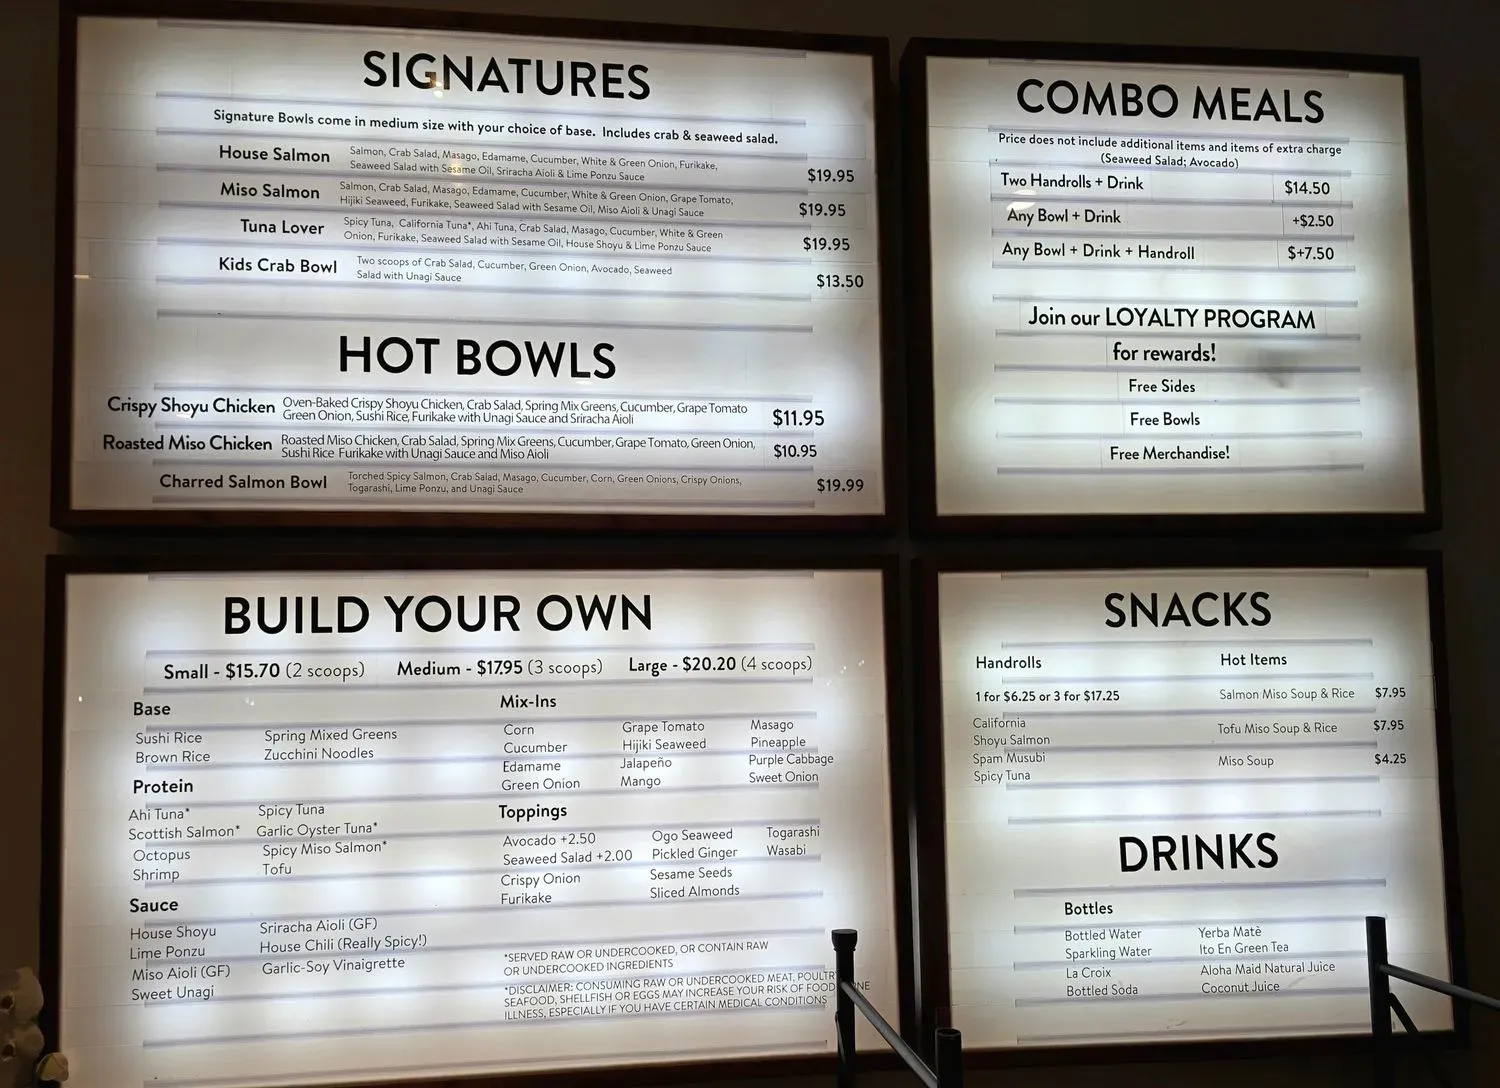 SIGNATURES
Signature Bowls come in medium size with your choice of base. Includes crab & seaweed salad.
House Salmon
Salmon, Crab Salad, Masago, Edamame, Cucumber, White & Green Onion, Furikake,
Seaweed Salad with Sesame Oil, Sriracha Aioli & Lime Ponzu Sauce
$19.95
Miso Salmon
Salmon, Crab Salad, Masago, Edamame, Cucumber, White & Green Onion, Grape Tomato,
Hijiki Seaweed, Furikake, Seaweed Salad with Sesame Oil, Miso Aioli & Unagi Sauce
$19.95
Tuna Lover
Spicy Tuna, California Tuna*, Ahi Tuna, Crab Salad, Masago, Cucumber, White & Green
Onion, Furikake, Seaweed Salad with Sesame Oil, House Shoyu & Lime Ponzu Sauce
$19.95
Kids Crab Bowl
Two scoops of Crab Salad, Cucumber, Green Onion, Avocado, Seaweed
Salad with Unagi Sauce
$13.50
HOT BOWLS
Crispy Shoyu Chicken
Oven-Baked Crispy Shoyu Chicken, Crab Salad, Spring Mix Greens, Cucumber, Grape Tomato
Green Onion, Sushi Rice, Furikake with Unagi Sauce and Sriracha Aioli
$11.95
Roasted Miso Chicken
Roasted Miso Chicken, Crab Salad, Spring Mix Greens, Cucumber, Grape Tomato, Green Onion,
Sushi Rice Furikake with Unagi Sauce and Miso Aioli
$10.95
Charred Salmon Bowl
Torched Spicy Salmon, Crab Salad, Masago, Cucumber, Corn, Green Onions, Crispy Onions,
Togarashi, Lime Ponzu, and Unagi Sauce
$19.99
COMBO MEALS
Price does not include additional items and items of extra charge
(Seaweed Salad; Avocado)
Two Handrolls + Drink $14.50
Any Bowl + Drink +$2.50
Any Bowl + Drink + Handroll $+7.50
Join our LOYALTY PROGRAM
for rewards!
Free Sides
Free Bowls
Free Merchandise!
BUILD YOUR OWN
Small - $15.70 (2 scoops) Medium - $17.95 (3 scoops) Large - $20.20 (4 scoops)
Base
Sushi Rice Spring Mixed Greens
Brown Rice Zucchini Noodles
Protein
Ahi Tuna* Spicy Tuna
Scottish Salmon* Garlic Oyster Tuna*
Octopus Spicy Miso Salmon*
Shrimp Tofu
Sauce
House Shoyu Sriracha Aioli (GF)
Lime Ponzu House Chili (Really Spicy!)
Miso Aioli (GF) Garlic-Soy Vinaigrette
Sweet Unagi
Mix-Ins
Corn Grape Tomato Masago
Cucumber Hijiki Seaweed Pineapple
Edamame Jalapeño Purple Cabbage
Green Onion Mango Sweet Onion
Toppings
Avocado +2.50 Ogo Seaweed Togarashi
Seaweed Salad +2.00 Pickled Ginger Wasabi
Crispy Onion Sesame Seeds
Furikake Sliced Almonds
*SERVED RAW OR UNDERCOOKED, OR CONTAIN RAW
OR UNDERCOOKED INGREDIENTS
*DISCLAIMER: CONSUMING RAW OR UNDERCOOKED MEAT, POULTR
SEAFOOD, SHELLFISH OR EGGS MAY INCREASE YOUR RISK OF FOOD NE
ILLNESS, ESPECIALLY IF YOU HAVE CERTAIN MEDICAL CONDITIONS
SNACKS
Handrolls
1 for $6.25 or 3 for $17.25
California
Shoyu Salmon
Spam Musubi
Spicy Tuna
Hot Items
Salmon Miso Soup & Rice $7.95
Tofu Miso Soup & Rice $7.95
Miso Soup $4.25
DRINKS
Bottles
Bottled Water Yerba Matè
Sparkling Water Ito En Green Tea
La Croix Aloha Maid Natural Juice
Bottled Soda Coconut Juice